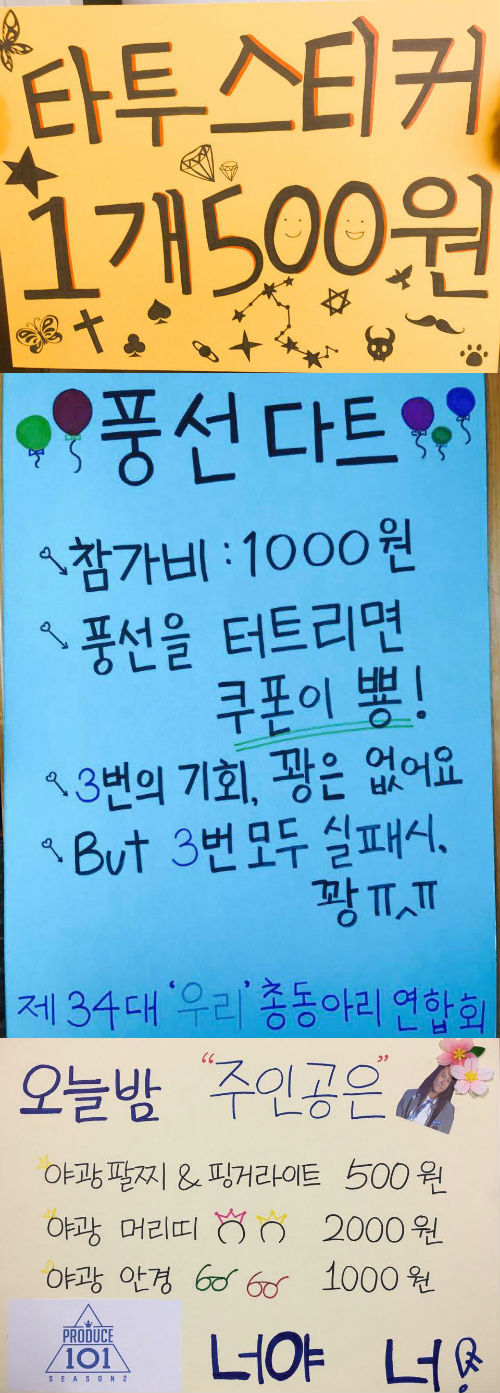 타투스티커
1개 500원
풍선 다트
참가비 : 1000원
풍선을 터트리면
쿠폰이 뿅!
3번의 기회, 꽝은 없어요
But 3번 모두 실패시.
꽝 ㅠ^ㅠ
제 34대 '우리' 총동아리 연합회
오늘밤 "주인공은"
야광팔찌 & 핑거라이트 500원
야광 머리띠 2000원
야광 안경 1000원
PRODUCE
101
SEASON 2
너야 너!